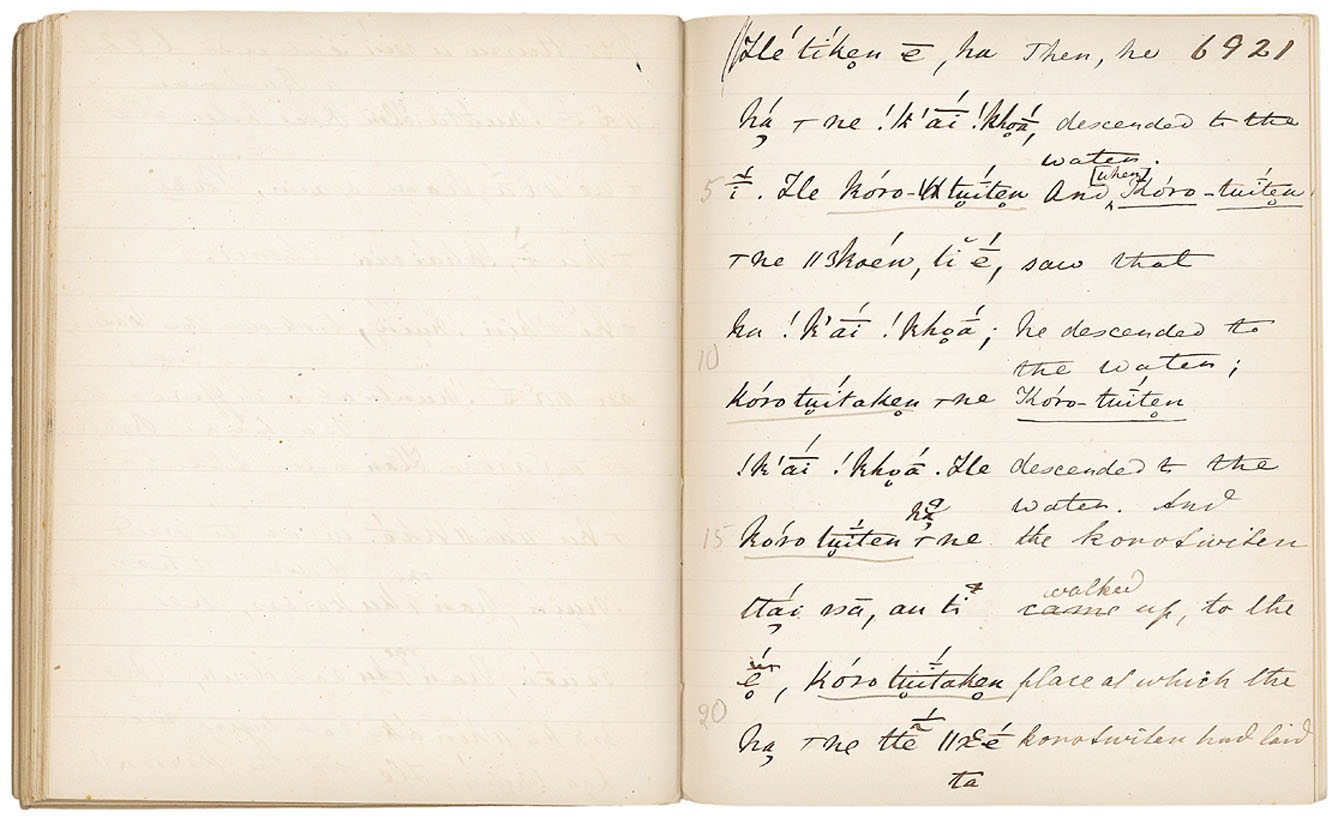 Hé tíken ē, ha Then, he 6921
há̦ ⊤ne !k'āí !khọā́, descended to the
water.
5 ī́. He kóro-tụítẹn And [when] Kóro-tuítẹn
⊤ne ǁ3koén, tĭ ḗ, saw that
ha !k'āí !khọā́; he descended to
10 the water;
kórotụítakẹn ⊤ne Kóro-tuítẹn
!k'āí !khọā́. He descended to the
water. And
15 kórotụíten ha̦ ⊤ne the korotwiten
ttá̦i sā, au ti walked came up, to the
ẹ́, kórotụítakẹn place at which the
20 ha̦ ⊤ne ttē̃ ǁxé korotwiten had laid
ta